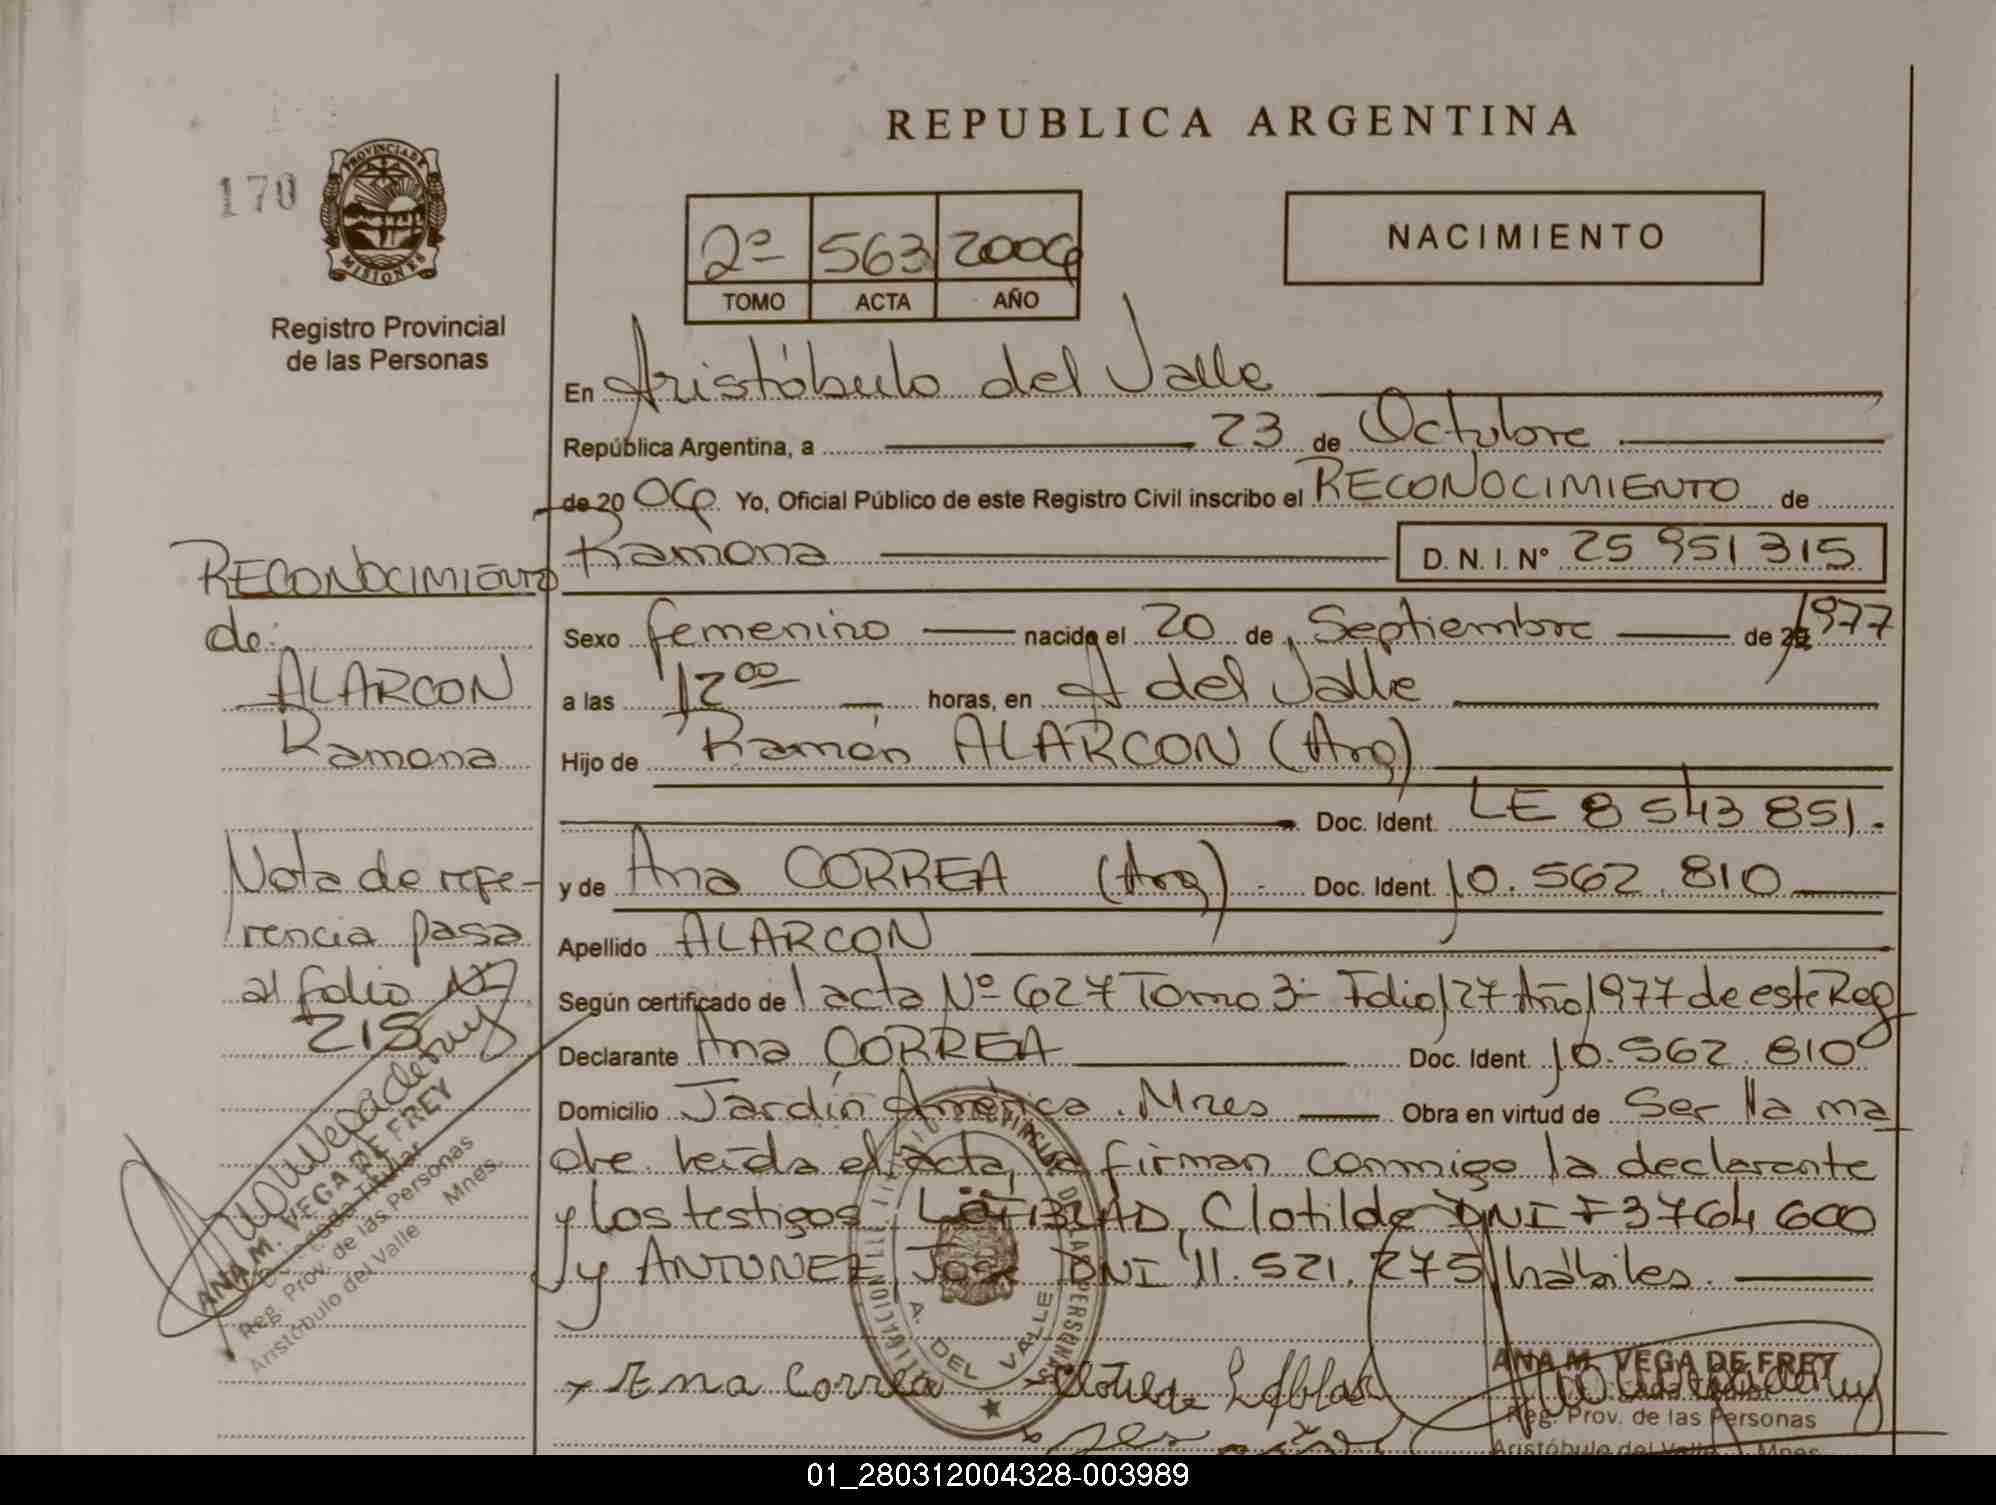 REPUBLICA ARGENTINA
170
PROVINCIA DE
MISIONES
Registro Provincial
de las Personas
2º 563 2006
TOMO ACTA AÑO
NACIMIENTO
En Aristóbulo del Valle
República Argentina, a 23 de Octubre
de 20 06 Yo, Oficial Público de este Registro Civil inscribo el RECONOCIMIENTO de
Ramona D. N. I. Nº 25 951 315
Sexo femenino nacida el 20 de Septiembre de 1977
a las 12 00 horas, en A del Valle
Hijo de Ramón ALARCON (Arg)
Doc. Ident. LE 8 543 851.
y de Ana CORREA (Arg) Doc. Ident. 10.562.810
Apellido ALARCON
Según certificado de acta Nº 627 Tomo 3º Folio 127 Año 1977 de este Reg
Declarante Ana CORREA Doc. Ident. 10.562.810
Domicilio Jardín América. Mnes Obra en virtud de Ser la ma
dre. Leída el acta, la firman conmigo la declarante
y los testigos Clotilde DNI F 3764600
y ANTUNEZ, José DNI 11.521.275 hábiles.
RECONOCIMIENTO
de:
ALARCON
Ramona
Nota de refe-
rencia pasa
al folio
215
ANA M. VEGA DE FREY
Reg. Prov. de las Personas
Aristóbulo del Valle Mnes.
A. DEL VALLE
x Ena Correa
Clotilde
ANA M. VEGA DE FREY
Reg. Prov. de las Personas
Aristóbulo del Valle Mnes
01_280312004328-003989